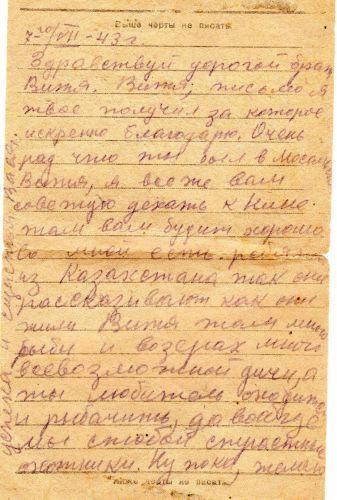 Выше черты не писать
7го/VII-43 г
Здравствуй дорогой брат
Витя. Витя, письмо я
твое получил за которое
искренно благодарю. Очень
рад что ты был в
Витя, я все же вам
советую уехать к Нине.
там вам будит хорошо
со мной есть ребята
из Казахстана так они
рассказивают как они
жили Витя там много
рыбы и возерах много
всевозможной дичи, а
ты любитель охотить
и рыбачить, да вообще
мы стобой страстные
охотники. Ну пока, желаю
успеха и счастья Вася
Ниже черты не писать